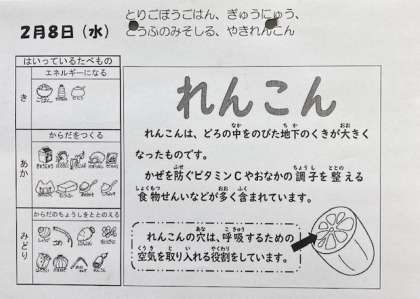 2月8日（水）
とりごぼうごはん、ぎゅうにゅう、
とうふのみそしる、やきれんこん
はいっているたべもの
エネルギーになる
き
からだをつくる
あか
からだのちょうしをととのえる
みどり
れんこん
れんこんは、どろの中をのびた地下のくきが大きく
なったものです。
かぜを防ぐビタミンCやおなかの調子を整える
食物せんいなどが多く含まれています。
れんこんの穴は、呼吸するための
空気を取り入れる役割をしています。